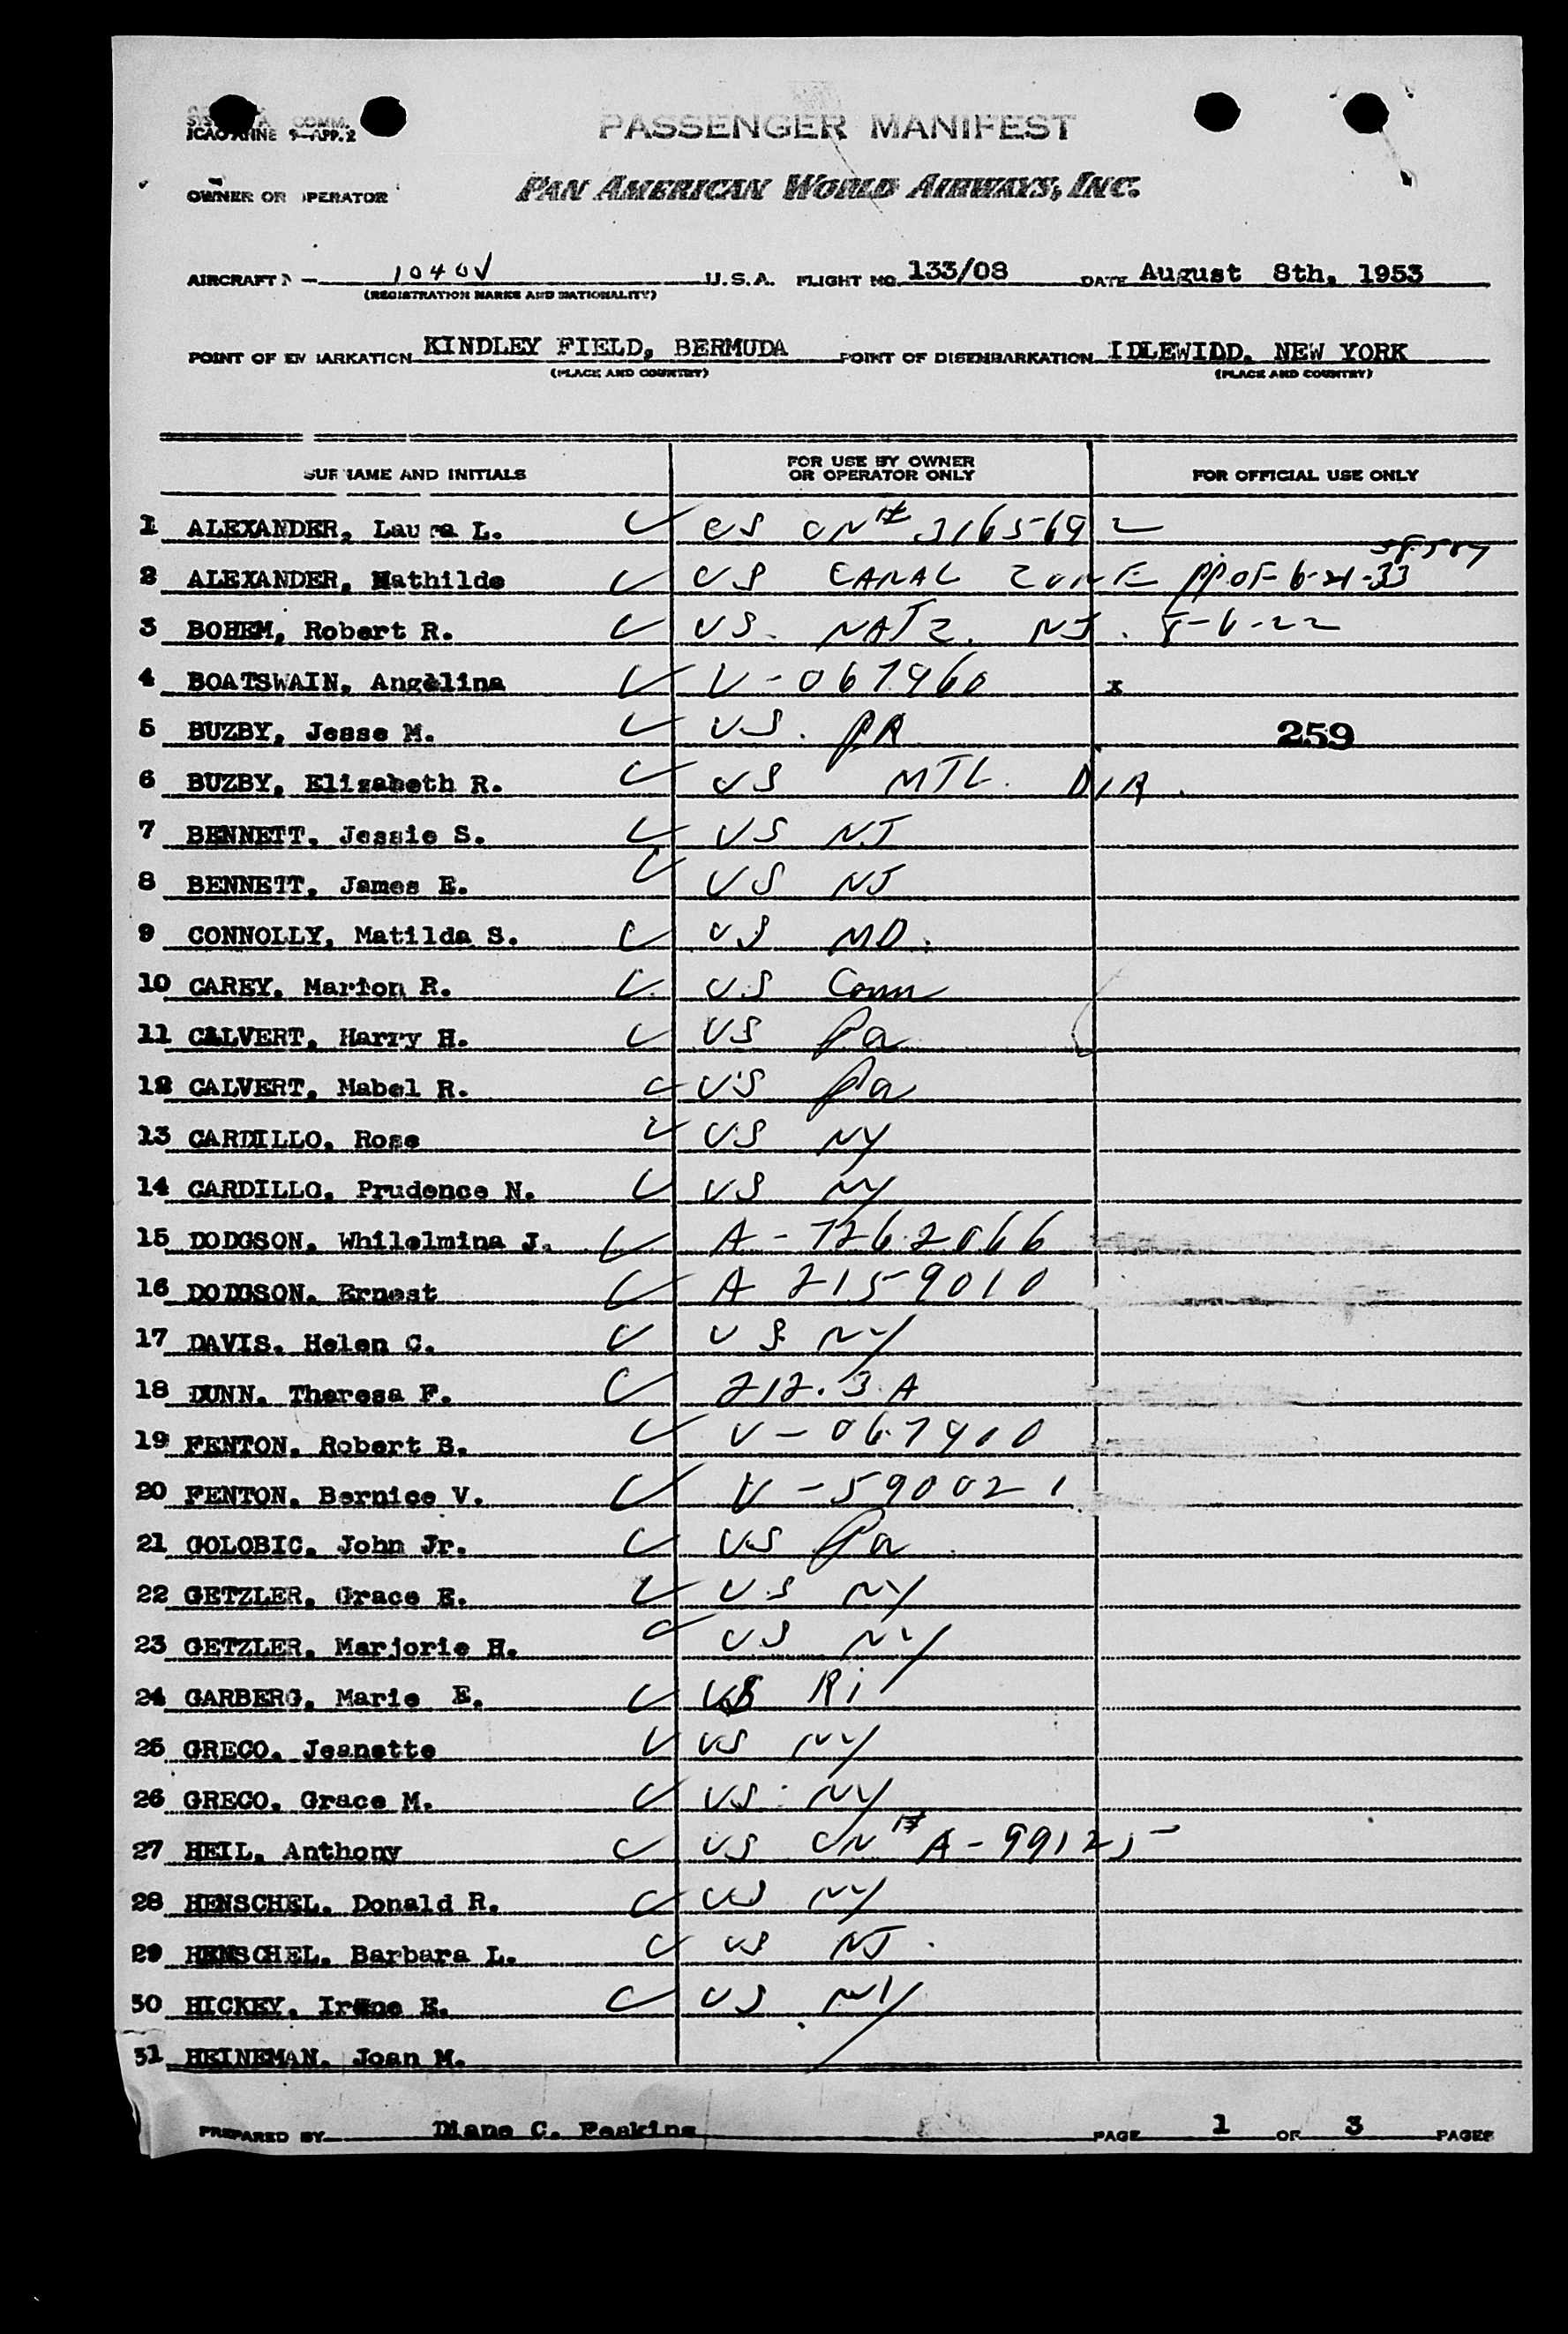 COMM.
ICAO ANNE 9-APP. 2
PASSENGER MANIFEST
OWNER OR OPERATOR
PAN AMERICAN WORLD AIRWAYS, INC.
AIRCRAFT N - 1040V U.S.A. FLIGHT NO. 133/08 DATE August 8th, 1953
(REGISTRATION MARKS AND NATIONALITY)
POINT OF EMBARKATION KINDLEY FIELD, BERMUDA POINT OF DISEMBARKATION IDLEWIDD, NEW YORK
(PLACE AND COUNTRY) (PLACE AND COUNTRY)
SURNAME AND INITIALS FOR USE BY OWNER OR OPERATOR ONLY FOR OFFICIAL USE ONLY
1 ALEXANDER, Laura L. ✓ US CN# 3165692
2 ALEXANDER, Mathilde ✓ US CANAL ZONE PPOF 6-21-33
3 BOHEM, Robert R. ✓ US. NATZ. NJ. 8-6-22
4 BOATSWAIN, Angelina ✓ V-067960 x
5 BUZBY, Jesse M. ✓ US. PA 259
6 BUZBY, Elizabeth R. ✓ US MTL. D/R.
7 BENNETT, Jessie S. ✓ US NJ
8 BENNETT, James E. ✓ US NJ
9 CONNOLLY, Matilda S. ✓ US MD.
10 CAREY, Marion R. ✓ US Conn
11 CALVERT, Harry H. ✓ US Pa
12 CALVERT, Mabel R. ✓ US Pa
13 CARDILLO, Rose ✓ US NY
14 CARDILLO, Prudence N. ✓ US NY
15 DODGSON, Whilelmina J. ✓ A-7262066
16 DODGSON, Ernest ✓ A 2159010
17 DAVIS, Helen C. ✓ US NY
18 DUNN, Theresa F. ✓ 212.3 A
19 FENTON, Robert B. ✓ V-067900
20 FENTON, Bernice V. ✓ V-590021
21 GOLOBIC, John Jr. ✓ US Pa
22 GETZLER, Grace E. ✓ US NY
23 GETZLER, Marjorie H. ✓ US NY
24 GARBERG, Marie E. ✓ US Ri
25 GRECO, Jeanette ✓ US NY
26 GRECO, Grace M. ✓ US NY
27 HEIL, Anthony ✓ US CN# A-99125
28 HENSCHEL, Donald R. ✓ US NY
29 HENSCHEL, Barbara L. ✓ US NJ.
30 HICKEY, Irene E. ✓ US NY
31 HEINEMAN, Joan M.
PREPARED BY Diane C. Feakins PAGE 1 OF 3 PAGES